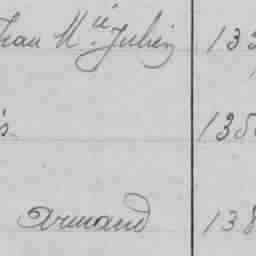 Jean M.ie Julien 13
s 135
Armand 138